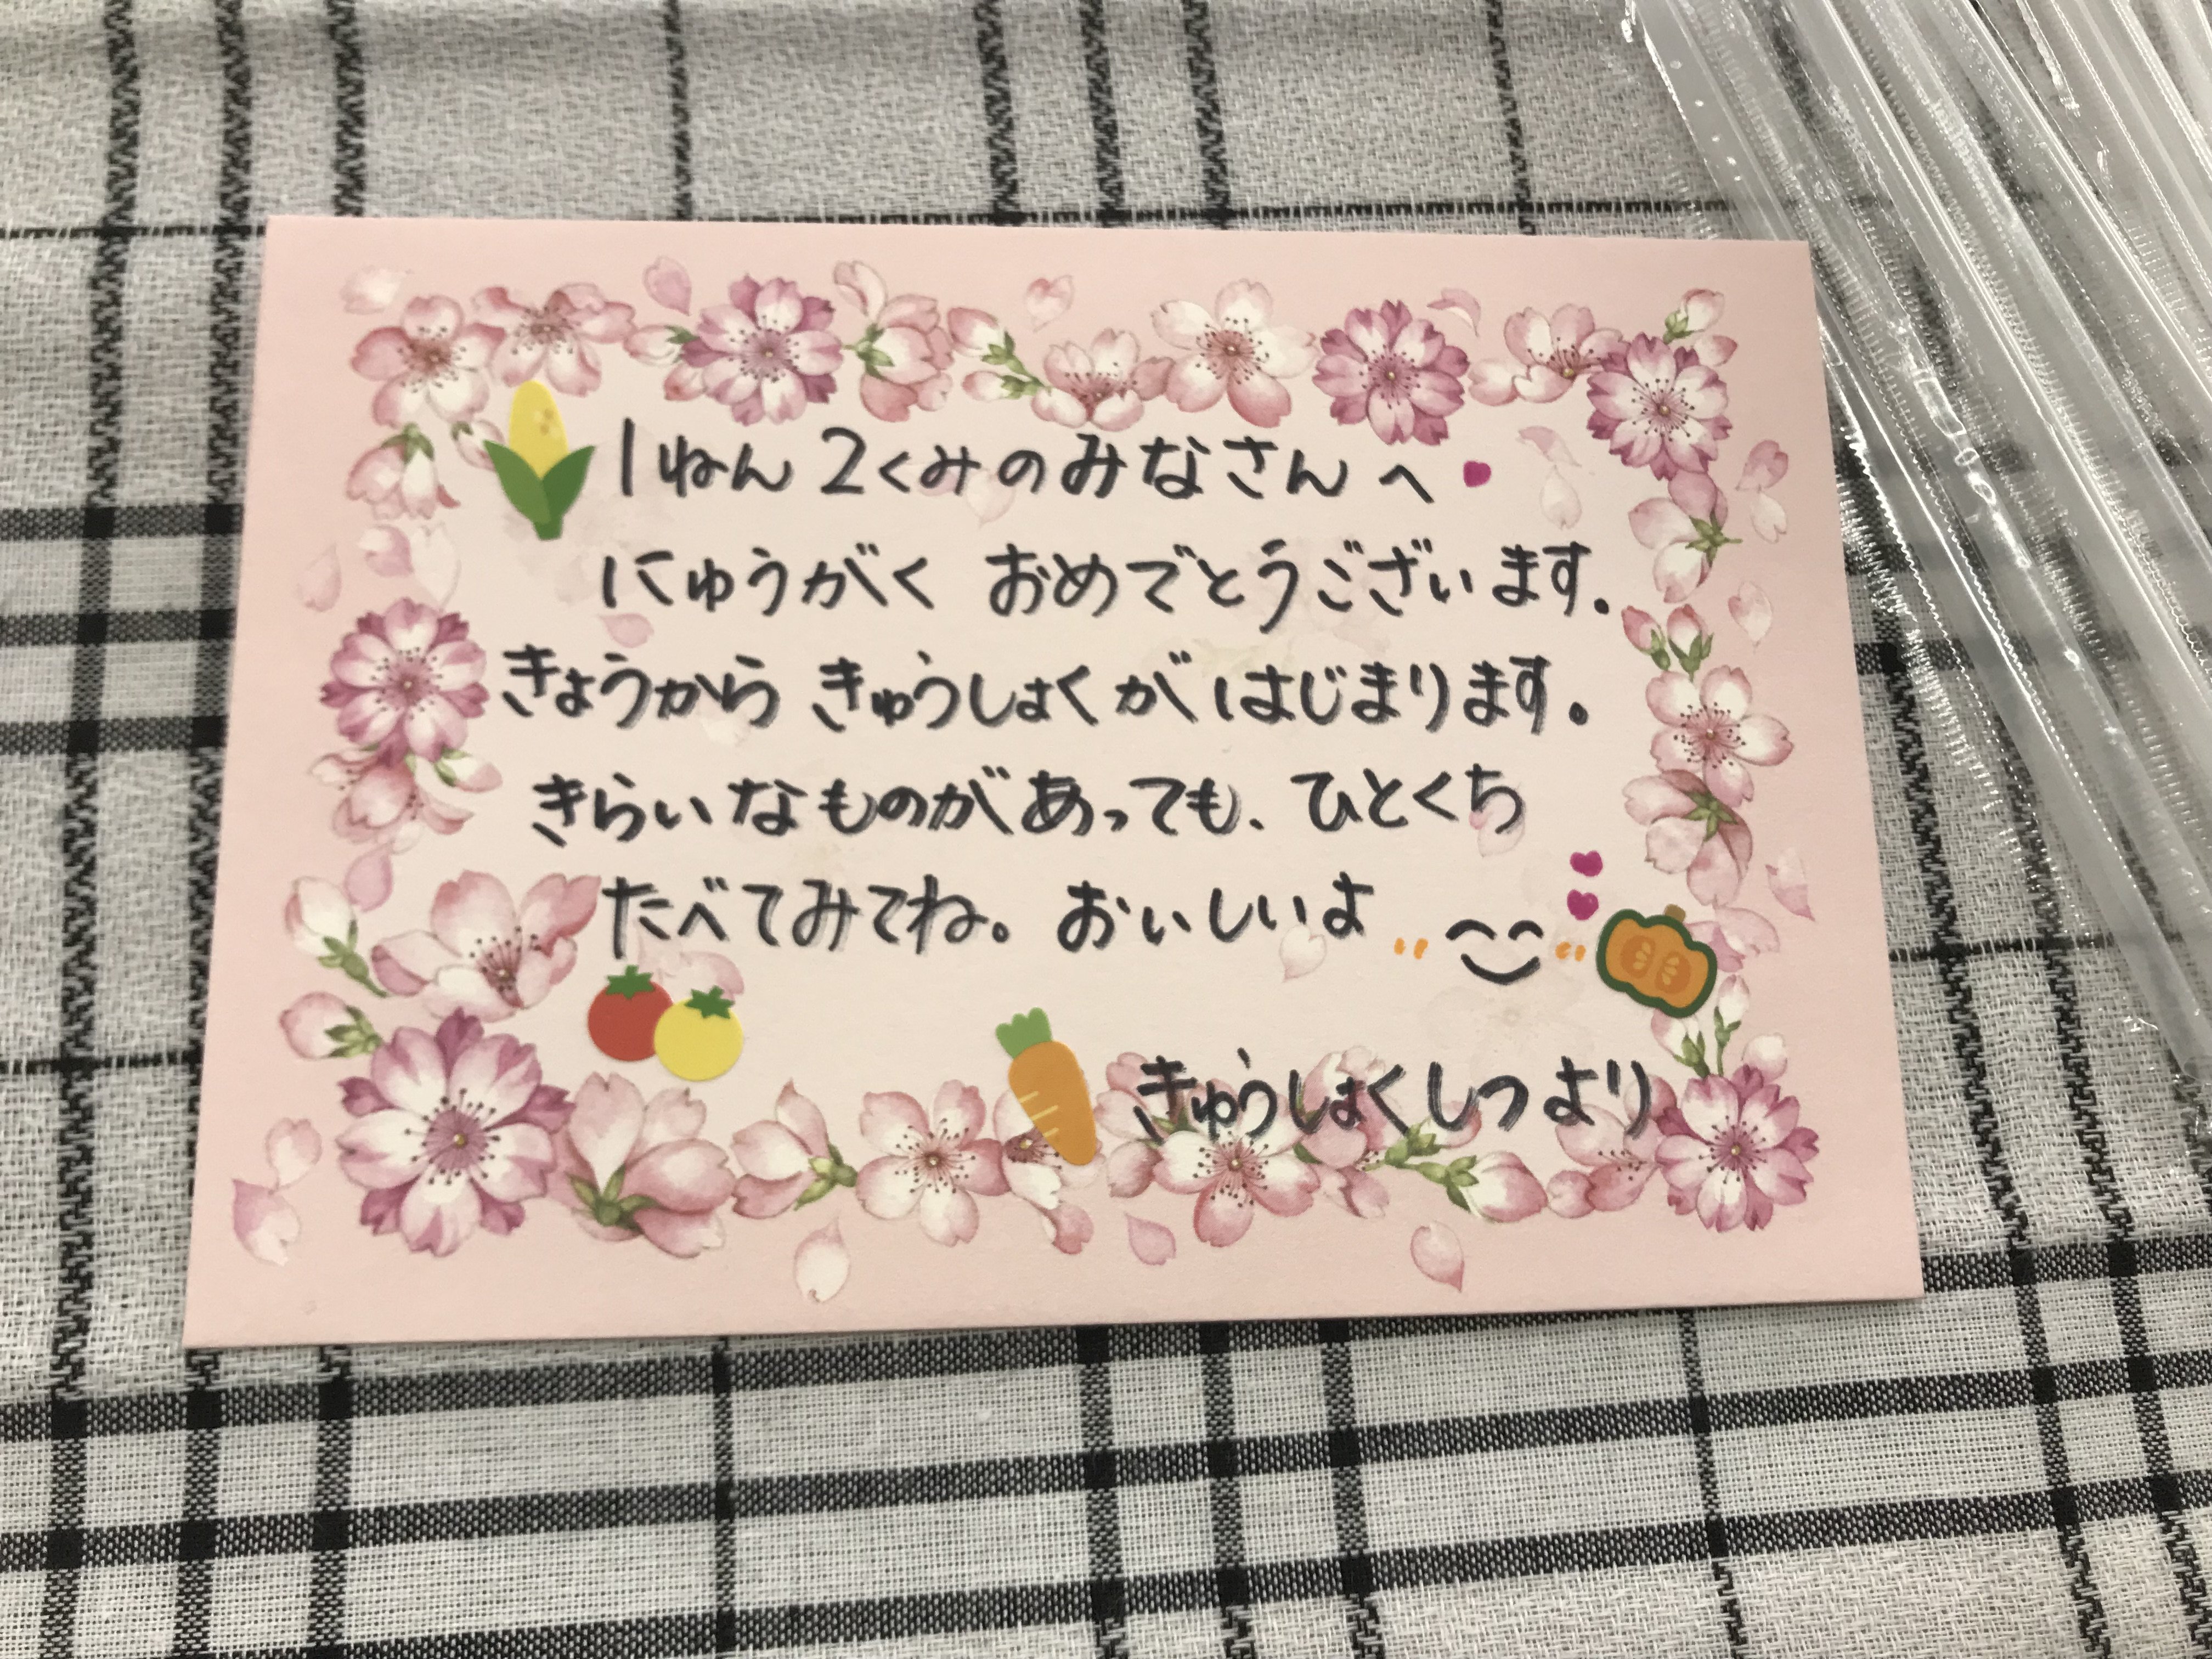 1ねん2くみのみなさんへ
にゅうがく おめでとうございます。
きょうから きゅうしょくが はじまります。
きらいなものがあっても、ひとくち
たべてみてね。おいしいよ
きゅうしょくしつより